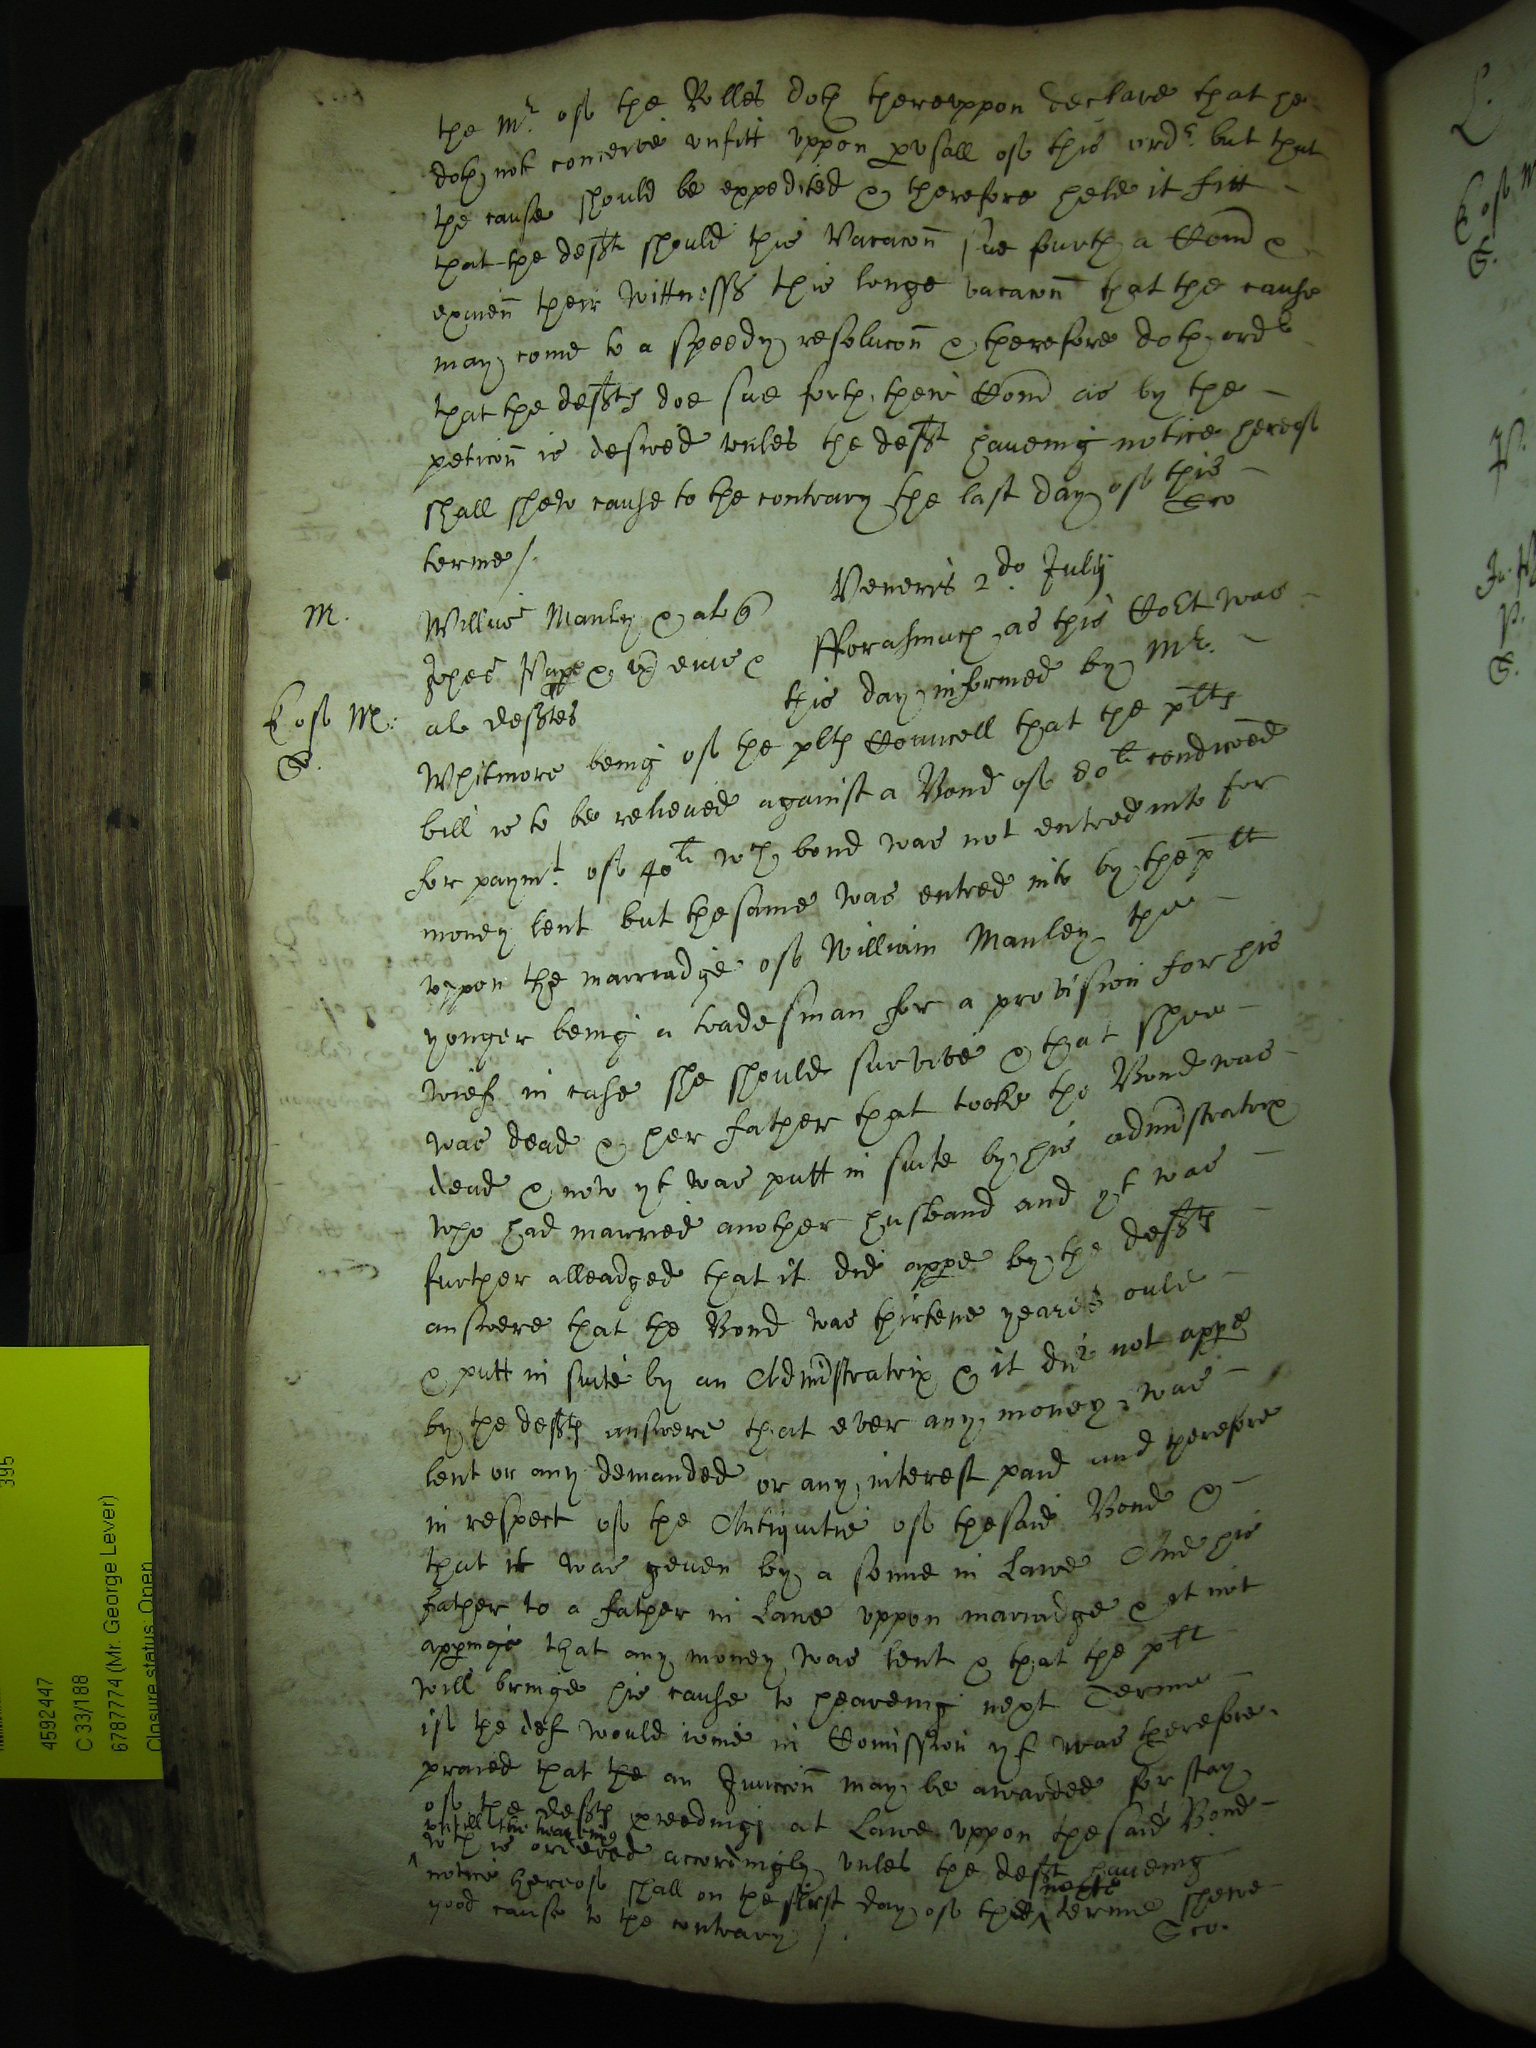 the Mr. of the Rolles doth thereuppon declare that he
doth not conceive unfitt uppon pusall of this ordr. but that
the cause should be expedited & therefore held it fitt
that the defts should this Vacacon sue furth a Com &
examen their Wittnesses this longe vacacon that the cause
may come to a speedy resolucon & therefore doth order
that the defts doe sue forth their Com as by the
peticon is desired unles the deft haveing notice hereof
shall shew cause to the contrary the last day of this
terme /.
Veneris 2do. July
M. Willus Manley & al
Johes & ux eius &
al deftes
fforasmuch as this Cort was
this day informed by Mr.
Whitmore being of the plts Councell that the plts
bill is to be relieved against a Bond of 80li condiconed
for paymt. of 40li wch bond was not entred into for
money lent but thesame was entred into by the plt
uppon the marriadge of William Manley the
yonger being a tradesman for a provision for his
wief in case she should survive & that shee
was dead & her father that tooke the Bond was
dead & now yt was putt in suite by his administratrix
who had married another husband and yt was
further alleadged that it did appe by the defts
answere that the Bond was thirtene yeares ould
& putt in suite by an Administratrix & it did not appe
by the defts answere that ever any money was
lent or any demanded or any interest paid and therefore
in respect of the Antiquitie of thesaid Bond &
that it was geven by a sonne in Lawe And his
father to a father in Lawe uppon marriadge & it not
appinge that any money was lent & that the plt
will bringe his cause to heareing next Terme
if the def would ioine in Comission yt was therefore
praied that the an Iniuccon may be awarded for stay
of the defts pceedings at Lawe uppon thesaid Bond
untill the hearing
wch is ordered accordingly unles the deft haveing
notice hereof shall on the first day of the next terme shewe
good cause to the contrary /.
395
4592447
C 33/188
6787774 (Mr. George Lever)
Closure status: Open